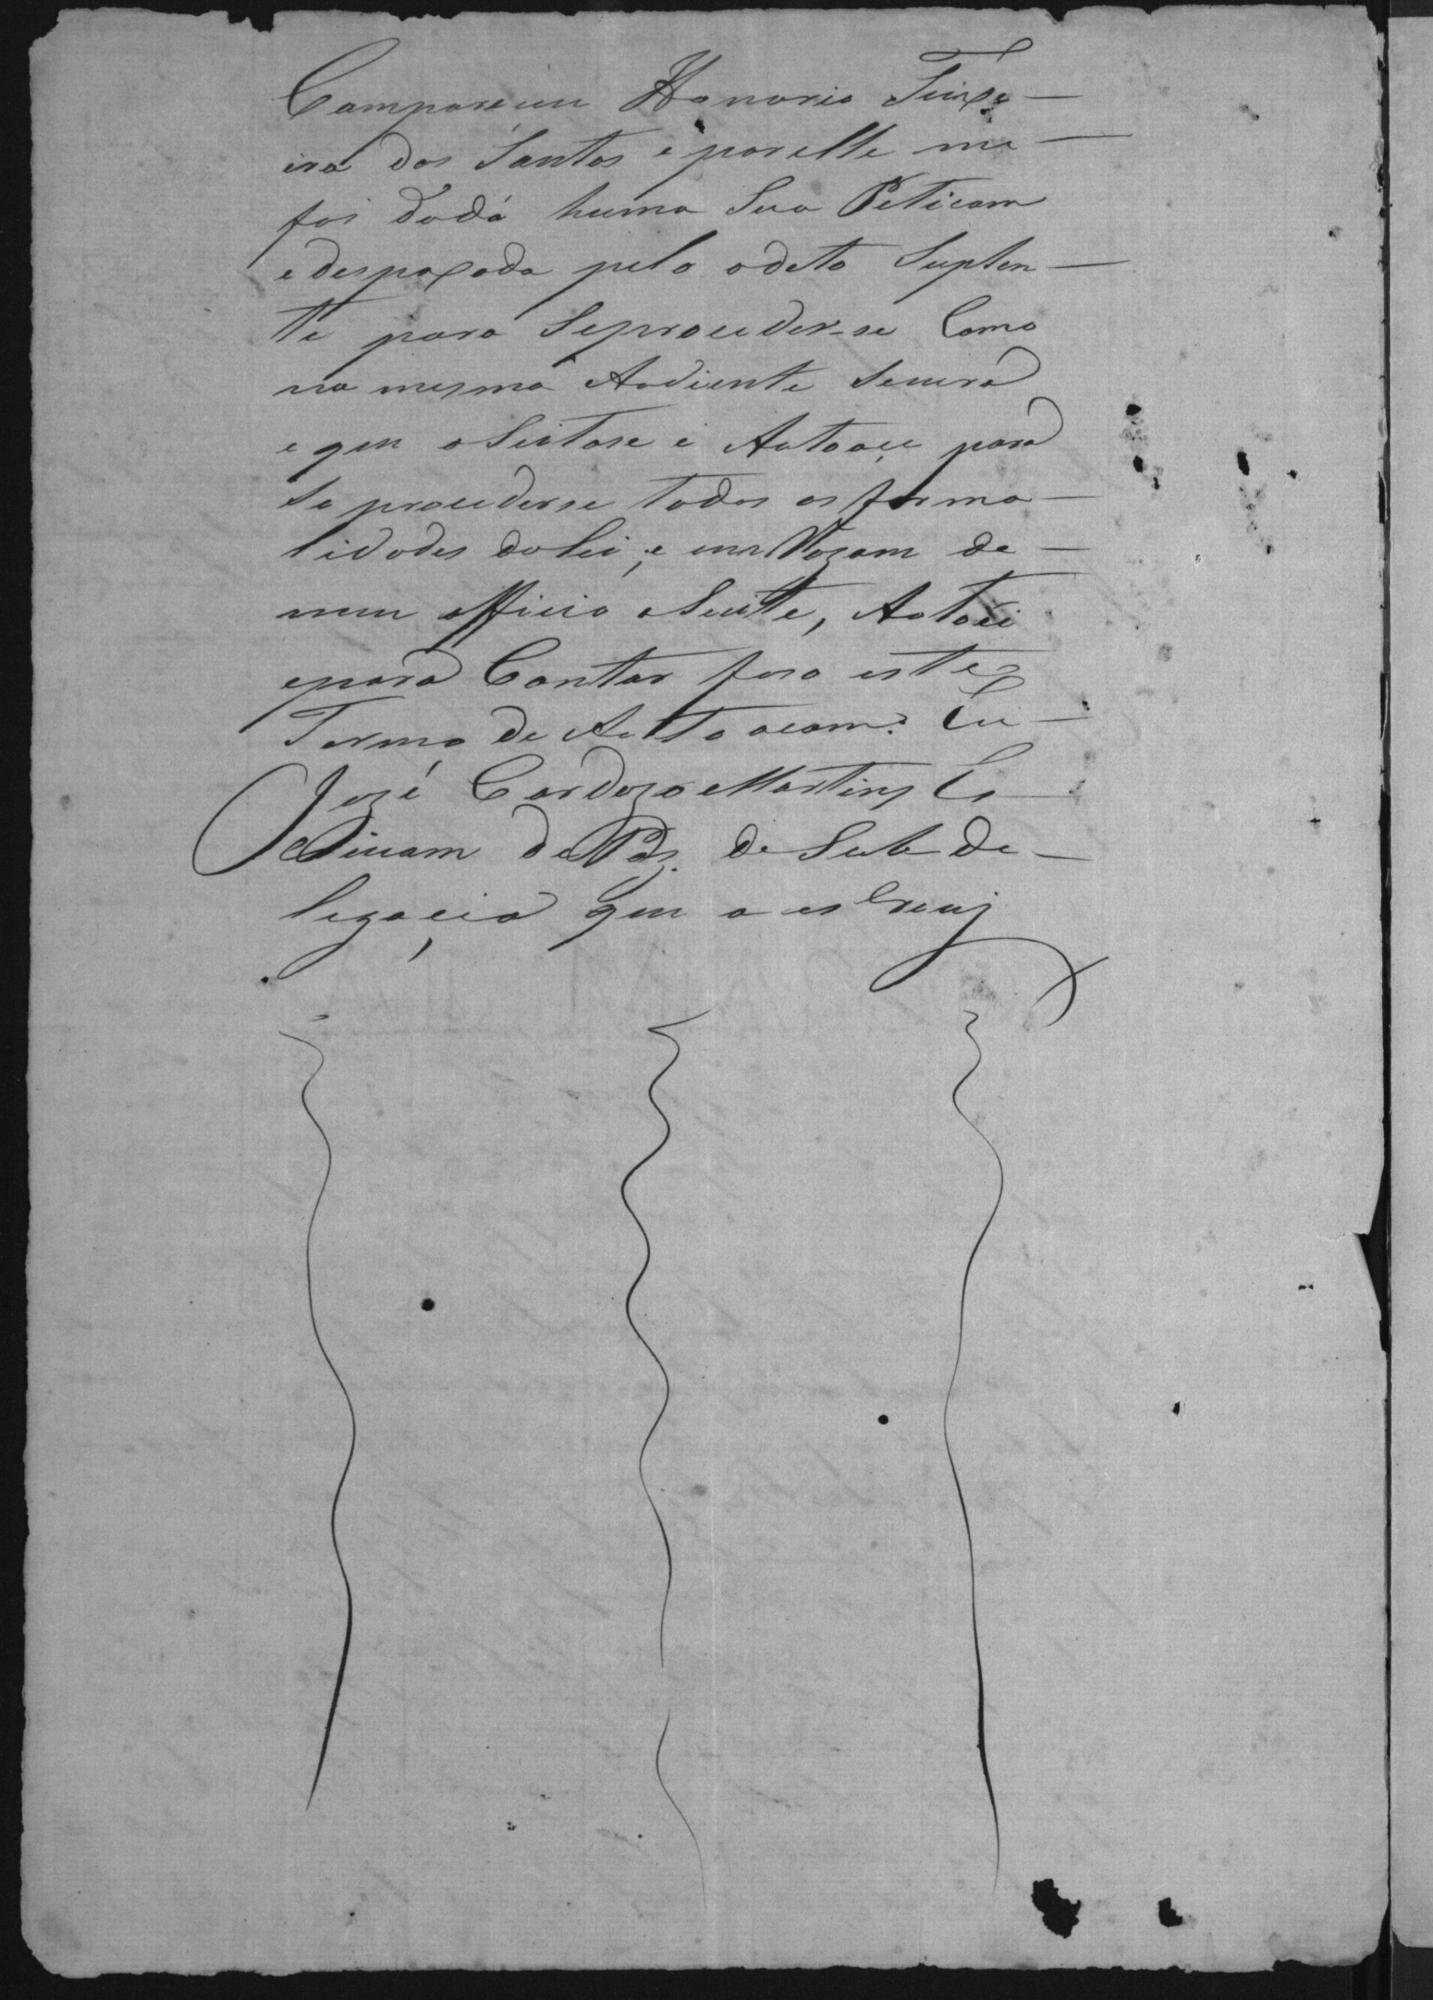 Compareceu Honorio Teixe
ira dos Santos e por elle me
foi dada huma Sua Peticam
e despaxada pelo o dito Suplen
te para Seproceder-se Como
na mesma Audiente Severa
e que aSeitase e Autoace para
Se procederse todas as forma
lidades da lei, e em Rozam de
meu officio aSeite, Autoei
epara Constar faso este
Termo de Autoacam. Eu
Jozé Cardozo Martins Es
Crivam de Paz. de Sub de
legacia que o esCrevij